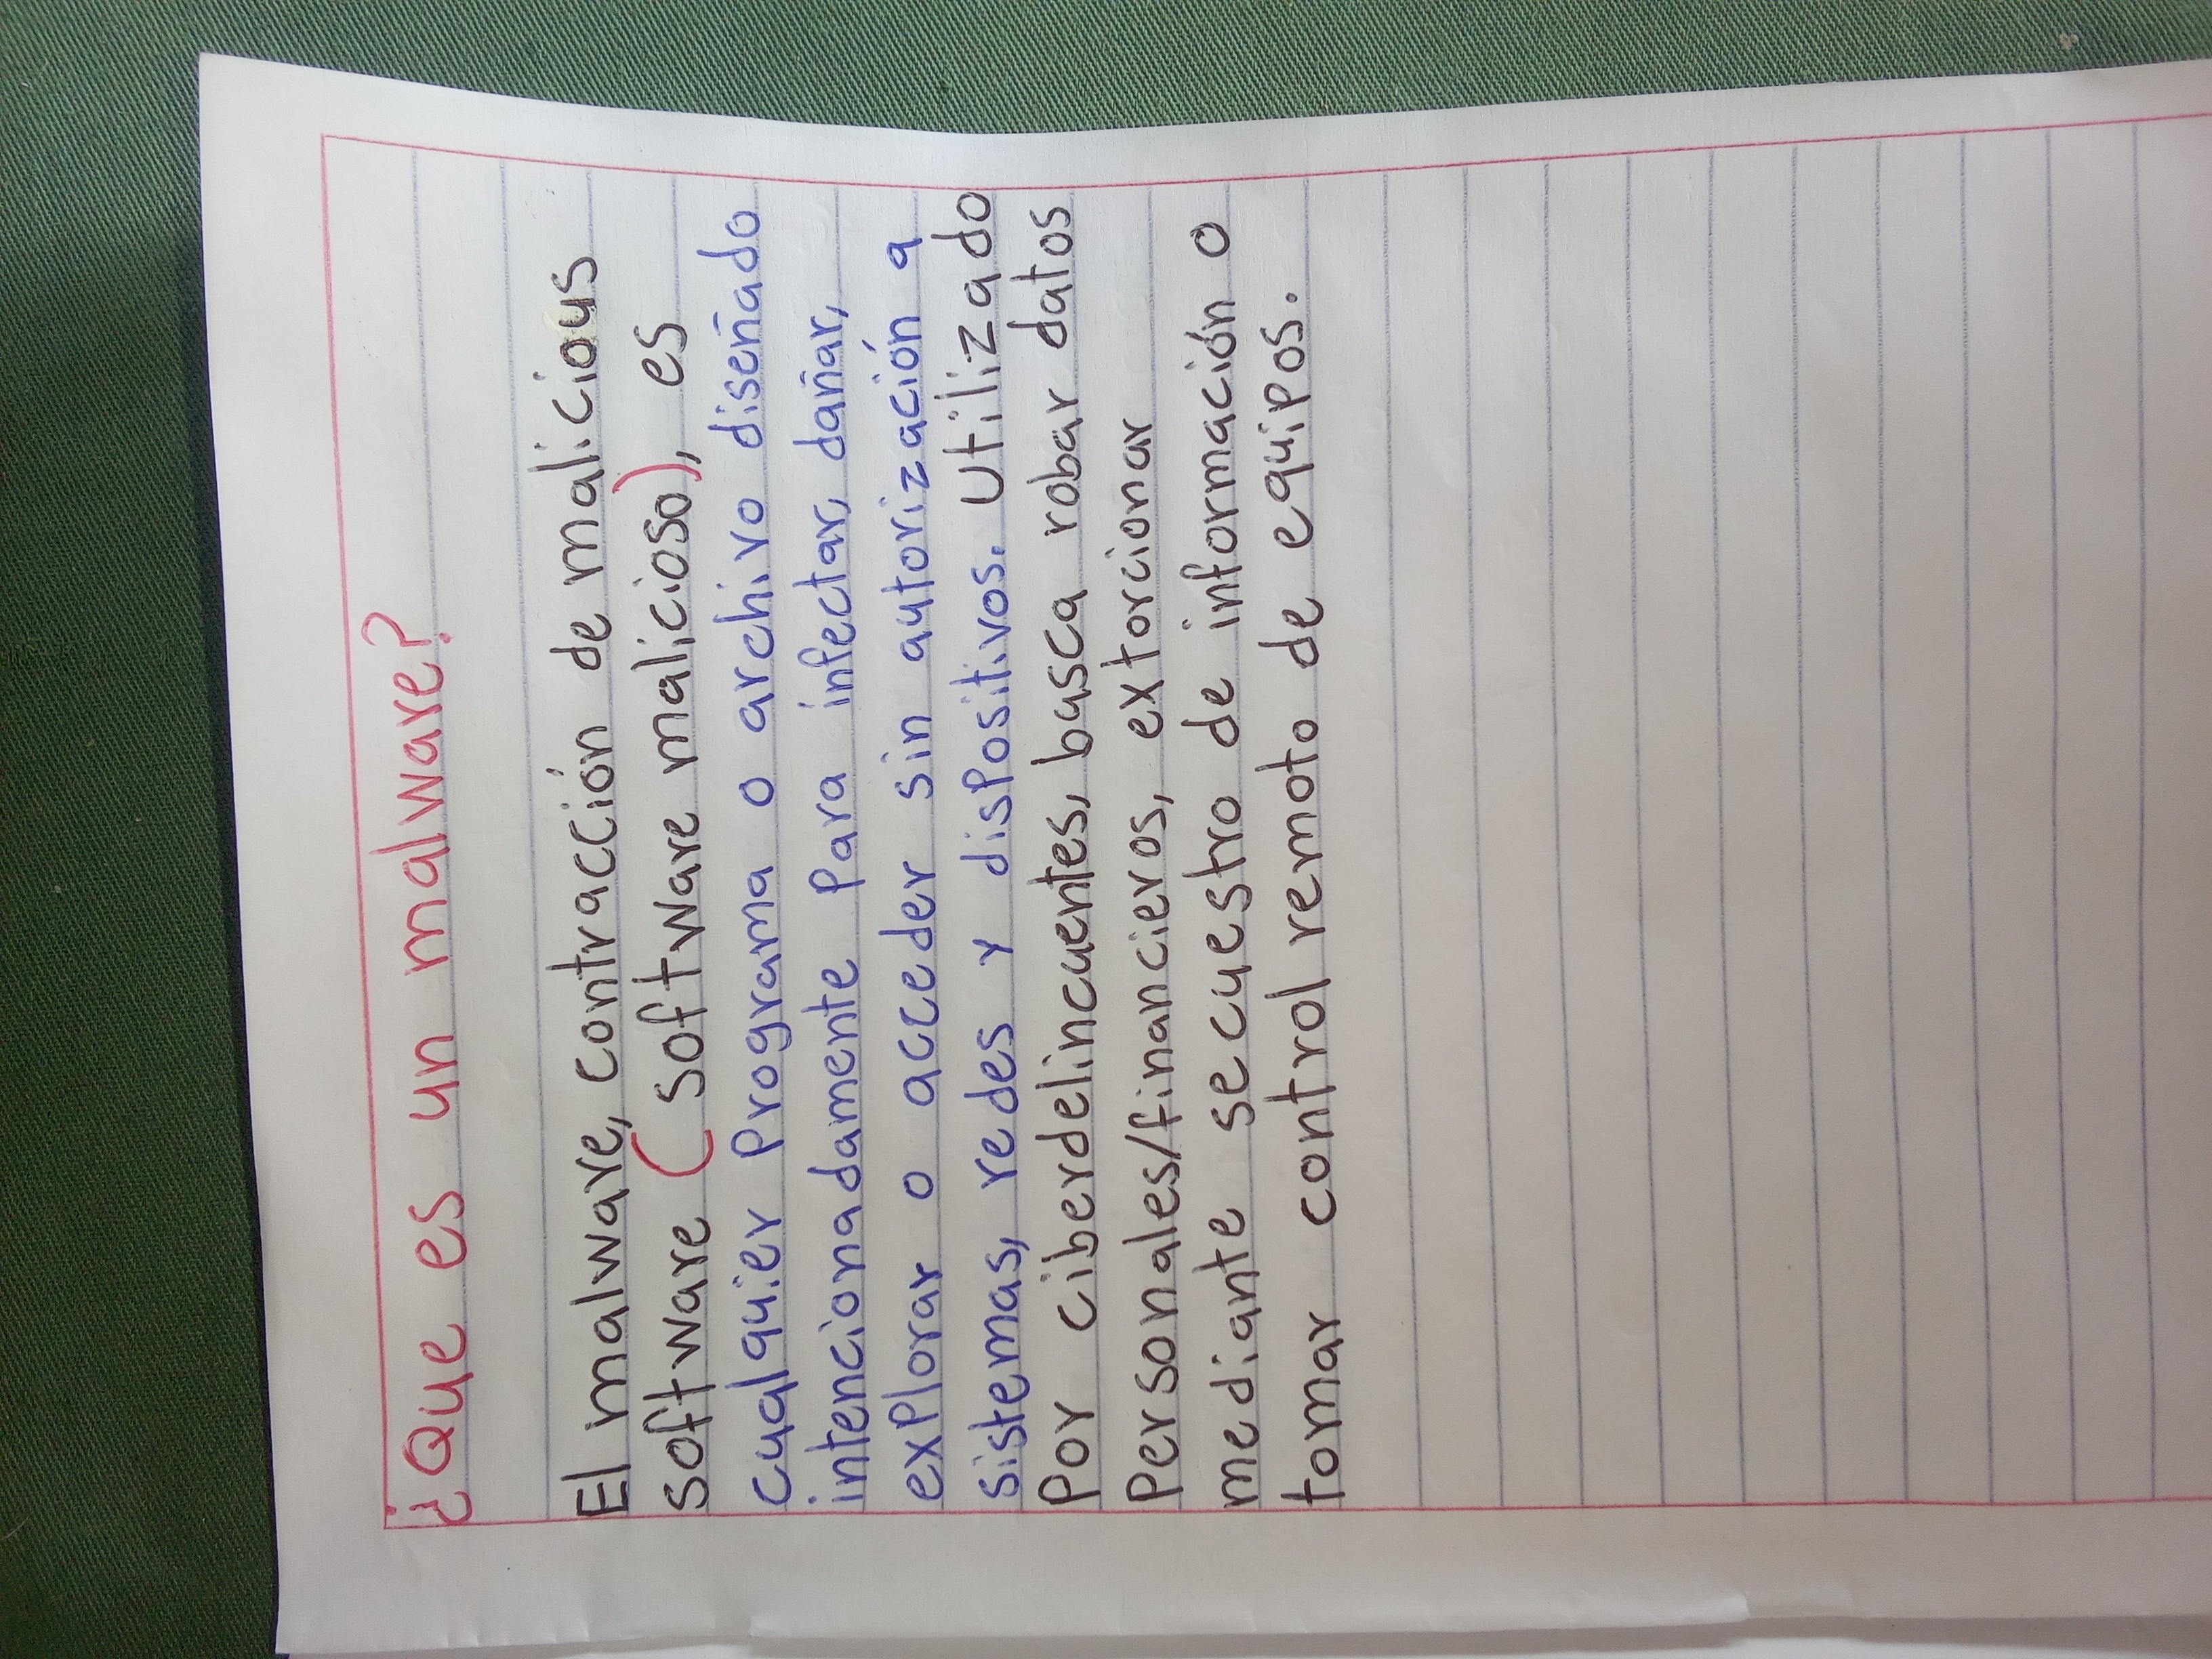 ¿Que es un malware?
El malware, contracción de malicious
software (software malicioso), es
cualquier Programa o archivo diseñado
intencionadamente Para infectar, dañar,
explorar o acceder sin autorización a
sistemas, redes y disPositivos. Utilizado
Por ciberdelincuentes, busca robar datos
Personales/financieros, extorcionar
mediante secuestro de información o
tomar control remoto de equipos.